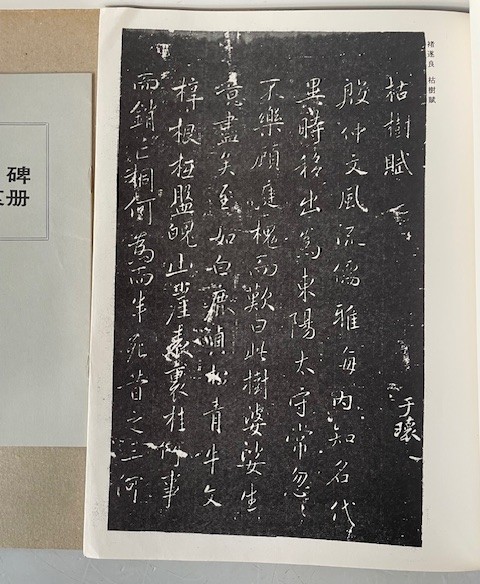 褚遂良 枯樹賦
枯樹賦
殷仲文風流儒雅海内知名代
異時移出為東陽太守常忽〻
不樂顧庭槐而歎曰此樹婆娑生
意盡矣至如白鹿貞松青牛文
梓根柢盤魄山崖表裏桂何事
而銷亡桐何為而半死昔之三河
碑
册